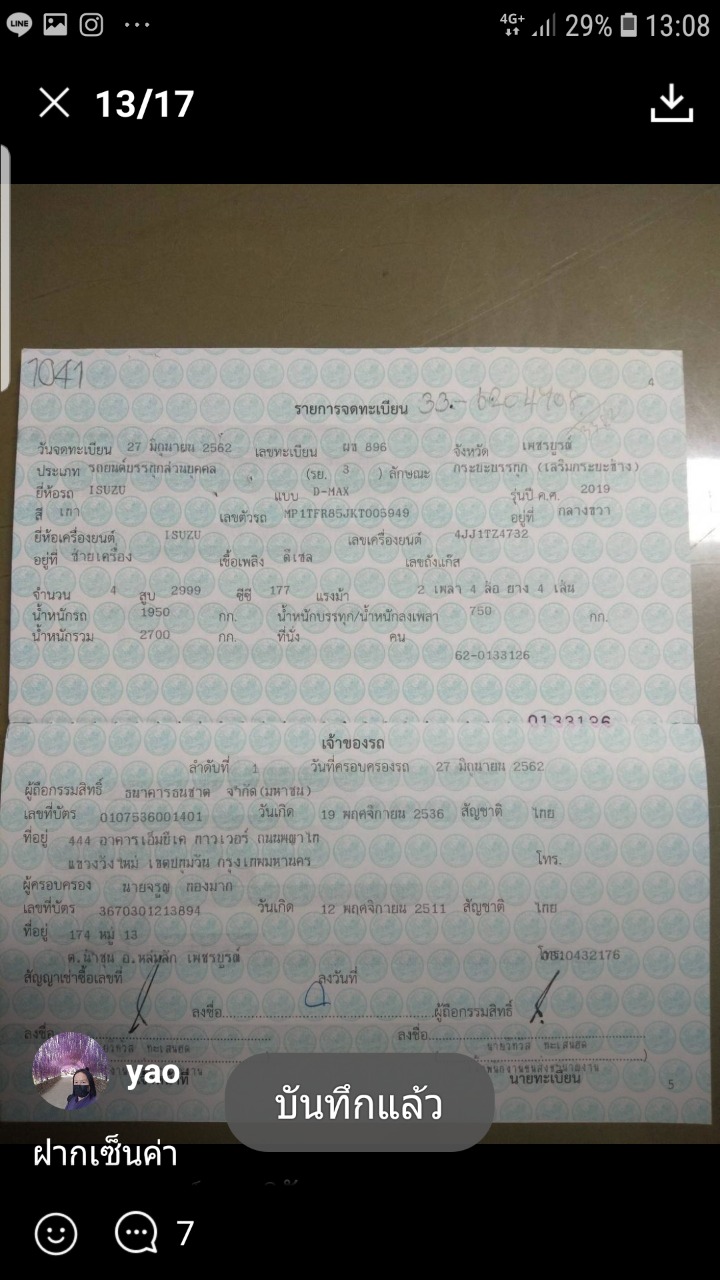 LINE 4G+ 29% 13:08
13/17
1041
4
รายการจดทะเบียน 33.-
วันจดทะเบียน 27 มิถุนายน 2562 เลขทะเบียน ผข 896 จังหวัด เพชรบูรณ์
ประเภท รถยนต์บรรทุกส่วนบุคคล (รย. 3 ) ลักษณะ กระบะบรรทุก (เสริมกระบะข้าง)
ยี่ห้อรถ ISUZU แบบ D-MAX รุ่นปี ค.ศ. 2019
สี เทา เลขตัวรถ MP1TFR85JKT005949 อยู่ที่ กลางขวา
ยี่ห้อเครื่องยนต์ ISUZU เลขเครื่องยนต์ 4JJ1TZ4732
อยู่ที่ ซ้ายเครื่อง เชื้อเพลิง ดีเซล เลขถังแก๊ส
จำนวน 4 สูบ 2999 ซีซี 177 แรงม้า 2 เพลา 4 ล้อ ยาง 4 เส้น
น้ำหนักรถ 1950 กก. น้ำหนักบรรทุก/น้ำหนักลงเพลา 750 กก.
น้ำหนักรวม 2700 กก. ที่นั่ง คน
62-0133126
0133126
เจ้าของรถ
ลำดับที่ 1 วันที่ครอบครองรถ 27 มิถุนายน 2562
ผู้ถือกรรมสิทธิ์ ธนาคารธนชาต จำกัด(มหาชน)
เลขที่บัตร 0107536001401 วันเกิด 19 พฤศจิกายน 2536 สัญชาติ ไทย
ที่อยู่ 444 อาคารเอ็มบีเค ทาวเวอร์ ถนนพญาไท
แขวงวังใหม่ เขตปทุมวัน กรุงเทพมหานคร โทร.
ผู้ครอบครอง นายจรูญ ทองมาก
เลขที่บัตร 3670301213894 วันเกิด 12 พฤศจิกายน 2511 สัญชาติ ไทย
ที่อยู่ 174 หมู่ 13
ต.น้ำชุน อ.หล่มสัก เพชรบูรณ์ โทร. 10432176
สัญญาเช่าซื้อเลขที่ ลงวันที่
ลงชื่อ ผู้ถือกรรมสิทธิ์
ลงชื่อ ลงชื่อ
นายทะเบียน
5
yao
บันทึกแล้ว
ฝากเซ็นค่า
7